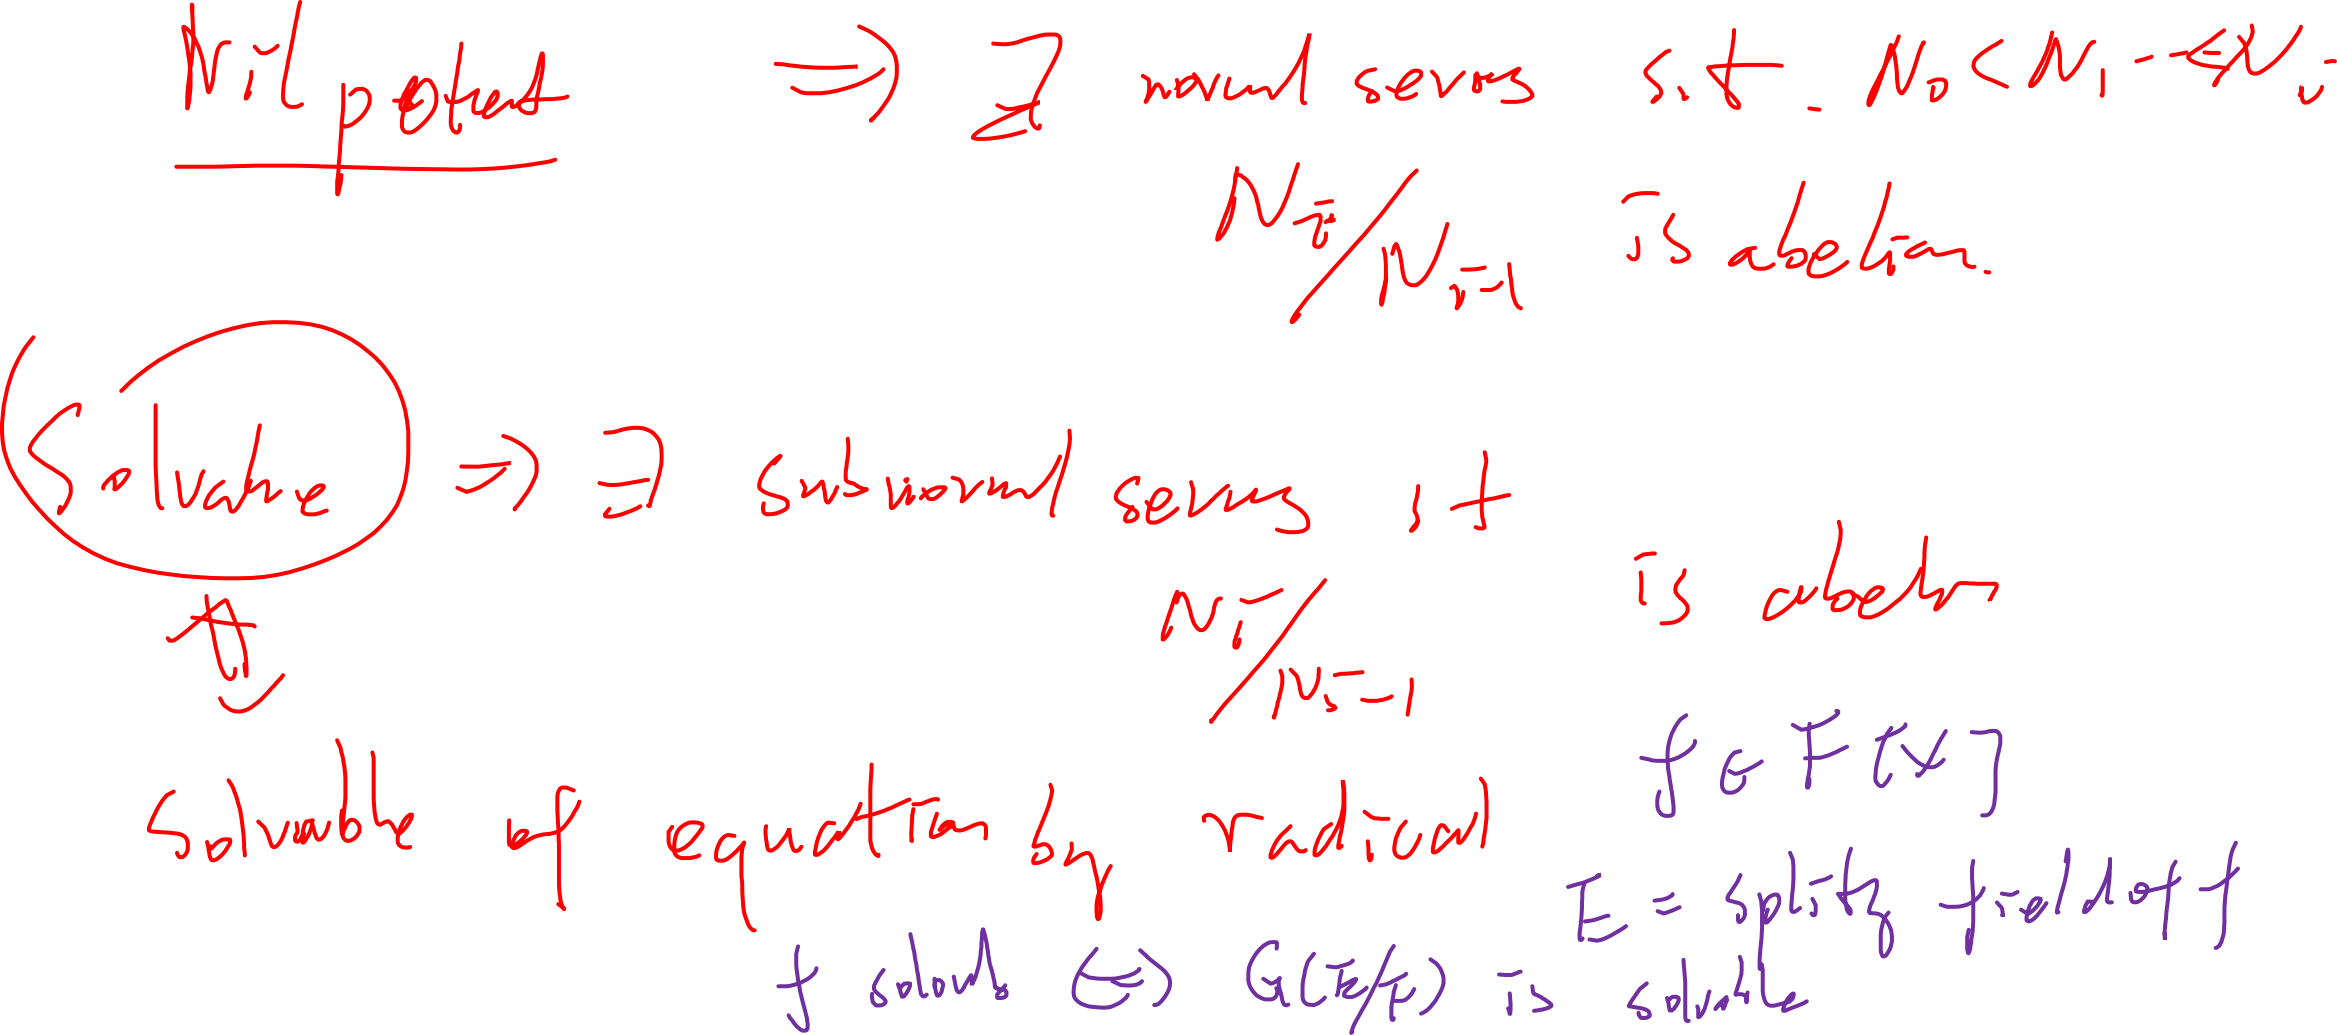 Nilpotent ⇒ ∃ normal series s.t. N₀ < N₁ -- < N
Nᵢ/Nᵢ₋₁ is abelian.
Solvable ⇒ ∃ subnormal series st
Nᵢ/Nᵢ₋₁ is abelian
solvable of equation by radical
f ∈ F[X]
E = splitting field of f
f solvable ⇔ G(E/F) is solvable